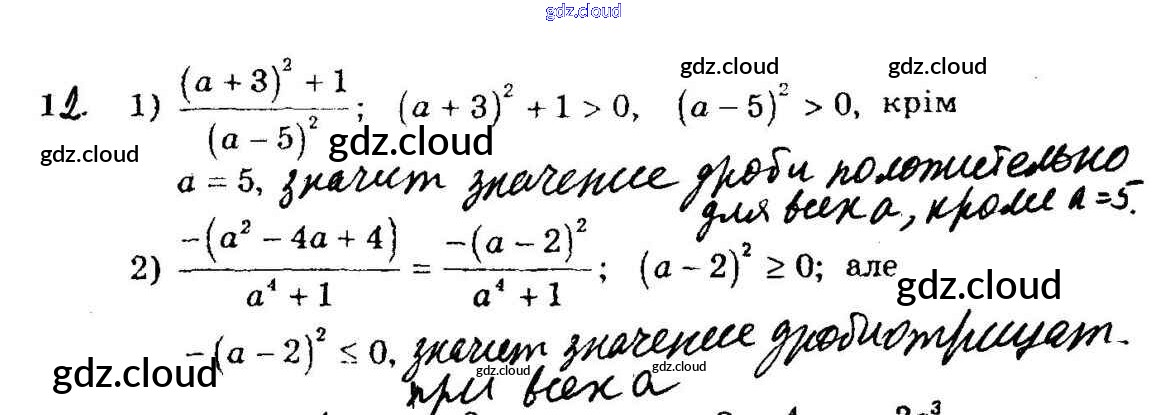 gdz.cloud
gdz.cloud gdz.cloud
12. 1) \frac{(a + 3)^2 + 1}{(a - 5)^2}; (a + 3)^2 + 1 > 0, (a - 5)^2 > 0, крім
gdz.cloud gdz.cloud
a = 5, значит значение дроби положительно
для всех a, кроме a = 5.
2) \frac{-(a^2 - 4a + 4)}{a^4 + 1} = \frac{-(a - 2)^2}{a^4 + 1}; (a - 2)^2 ≥ 0; але
gdz.cloud
-(a - 2)^2 ≤ 0, значит значение дроби отрицат.
gdz.cloud gdz.cloud gdz.cloud
при всех a